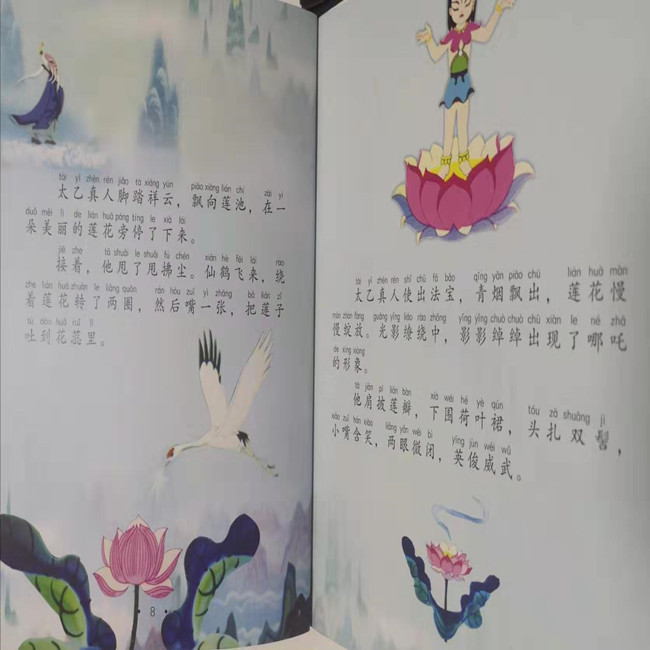 tài yǐ zhēn rén jiǎo tà xiáng yún piāo xiàng lián chí zài yì
太乙真人脚踏祥云，飘向莲池，在一
duǒ měi lì de lián huā páng tíng le xià lái
朵美丽的莲花旁停了下来。
jiē zhe tā shuǎi le shuǎi fú chén xiān hè fēi lái rào
接着，他甩了甩拂尘。仙鹤飞来，绕
zhe lián huā zhuàn le liǎng quān rán hòu zuǐ yì zhāng bǎ lián zǐ
着莲花转了两圈，然后嘴一张，把莲子
tǔ dào huā ruǐ lǐ
吐到花蕊里。
8
tài yǐ zhēn rén shǐ chū fǎ bǎo qīng yān piāo chū lián huā màn
太乙真人使出法宝，青烟飘出，莲花慢
màn zhàn fàng guāng yǐng liáo rào zhōng yǐng yǐng chuò chuò chū xiàn le né zhā
慢绽放。光影缭绕中，影影绰绰出现了哪吒
de xíng xiàng
的形象。
tā jiān pī lián bàn xià wéi hé yè qún tóu zā shuāng jì
他肩披莲瓣，下围荷叶裙，头扎双髻，
xiǎo zuǐ hán xiào liǎng yǎn wēi bì yīng jùn wēi wǔ
小嘴含笑，两眼微闭，英俊威武。